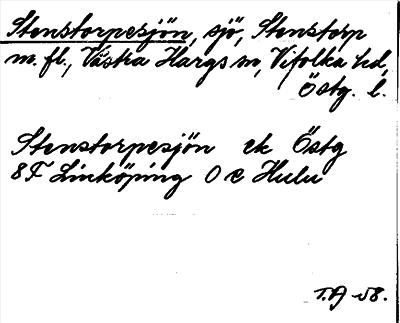 Stenstorpesjön, sjö, Stenstorp
m.fl., Västra Hargs sn, Vifolka hd,
Östg. l.
Stenstorpesjön ek Östg
8F Linköping 0 e Hulu
T.A -58.